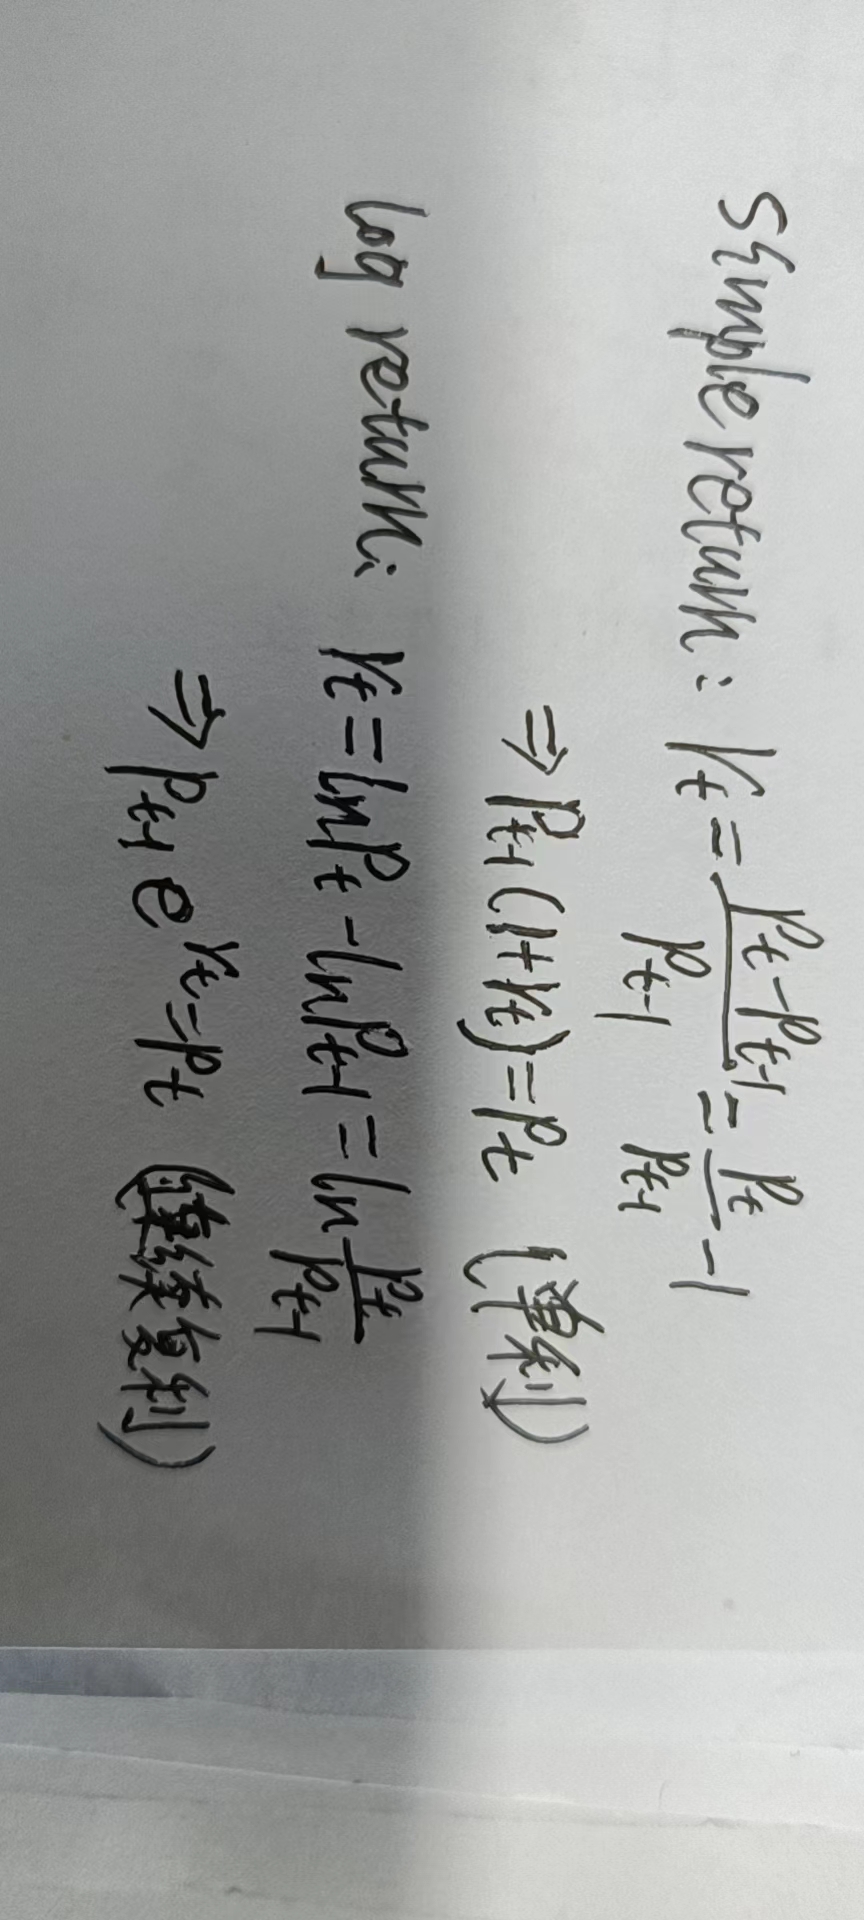 simple return: r_t = (P_t - P_{t-1})/P_{t-1} = P_t/P_{t-1} - 1
⇒ P_{t-1}(1+r_t) = P_t (单利)
log return: r_t = lnP_t - lnP_{t-1} = ln P_t/P_{t-1}
⇒ P_{t-1} e^{r_t} = P_t (连续复利)